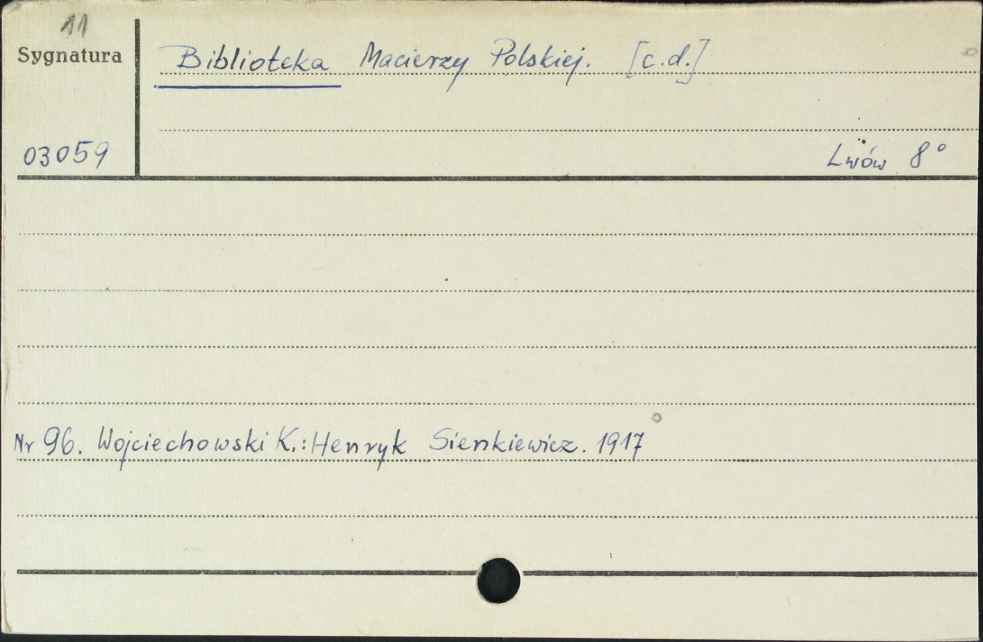 11
Sygnatura
Biblioteka Macierzy Polskiej. [c.d.]
03059
Lwów 8°
Nr 96. Wojciechowski K.: Henryk Sienkiewicz. 1917